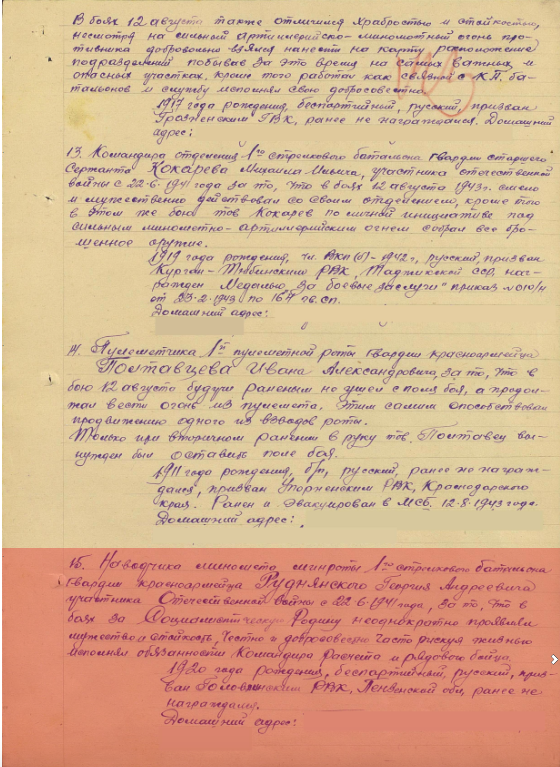 В боях 12 августа также отличился храбростью и стойкостью,
несмотря на сильный артиллерийско-минометный огонь про-
тивника добровольно взялся нанести на карту расположение
подразделений побывав за это время на самых важных и
опасных участках, кроме того работая как связной с КП. ба-
тальонов и службу исполнял свою добросовестно.
1917 года рождения, беспартийный, русский, призван
Грозненским ГВК, ранее не награждался. Домашний
адрес:
13. Командира отделения 1го стрелкового батальона гвардии старшего
Сержанта Кокарева Михаила Ильича, участника отечественной
войны с 22-6-1941 года за то, что в боях 12 августа 1943г. смело
и мужественно действовал со своим отделением, кроме того
в этом же бою тов Кокарев по личной инициативе под
сильным минометно-артиллерийским огнем собрал все бро-
шенное оружие.
1919 года рождения, чл. ВКП(б)-1942г, русский, призван
Курган-Тюбинским РВК, Таджикской ССР, наг-
ражден Медалью „За боевые заслуги" приказ №010/н
от 23-2-1943 по 164 гв.сп.
Домашний адрес:
14. Пулеметчика 1й пулеметной роты гвардии красноармейца
Полтавцева Ивана Александровича, за то, что в
бою 12 августа будучи раненым не ушел с поля боя, а продол-
жал вести огонь из пулемета. Этим самым способствовал
продвижению одного из взводов роты.
Только при вторичном ранении в руку тов. Полтавец вы-
нужден был оставить поле боя.
1911 года рождения, б/п, русский, ранее не награж-
дался, призван РВК, Краснодарского
края. Ранен и эвакуирован в МСБ. 12-8-1943 года.
Домашний адрес:
15. Наводчика миномета минроты 1го стрелкового батальона
гвардии красноармейца Руднянского Георгия Андреевича
участника Отечественной войны с 22-6-1941 года, за то, что в
боях за Социалистическую Родину неоднократно проявлял
мужество и стойкость, честно и добросовестно часто рискуя жизнью
исполнял обязанности Командира расчета и рядового бойца.
1920 года рождения, беспартийный, русский, приз-
ван РВК, Пензенской обл, ранее не
награждался.
Домашний адрес: